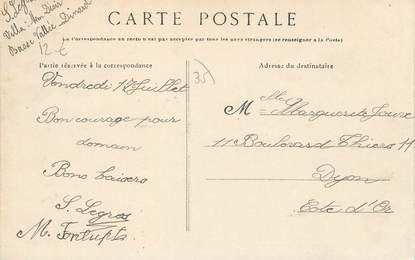 S. Legros
Villa
Basse Vallée Dinard
12 €
CARTE POSTALE
La Correspondance au recto n'est pas acceptée par tous les pays étrangers (se renseigner à la Poste)
Partie réservée à la correspondance
Adresse du destinataire
35
Vendredi 17 Juillet
Bon courage pour
domain
Bons baisers
S. Legros
M.
M Mlle Marguerite
11 Boulevard Thiers 11
Dijon
Cote d'Or